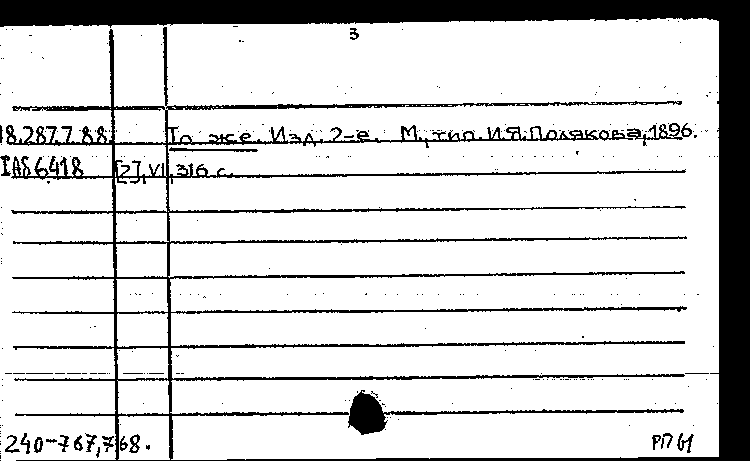 3
18.287.7.88. То же. Изд. 2-е. М., тип. И.Я.Полякова, 1896.
IAS6418 [2], VI, 316 с.
240-767,768.